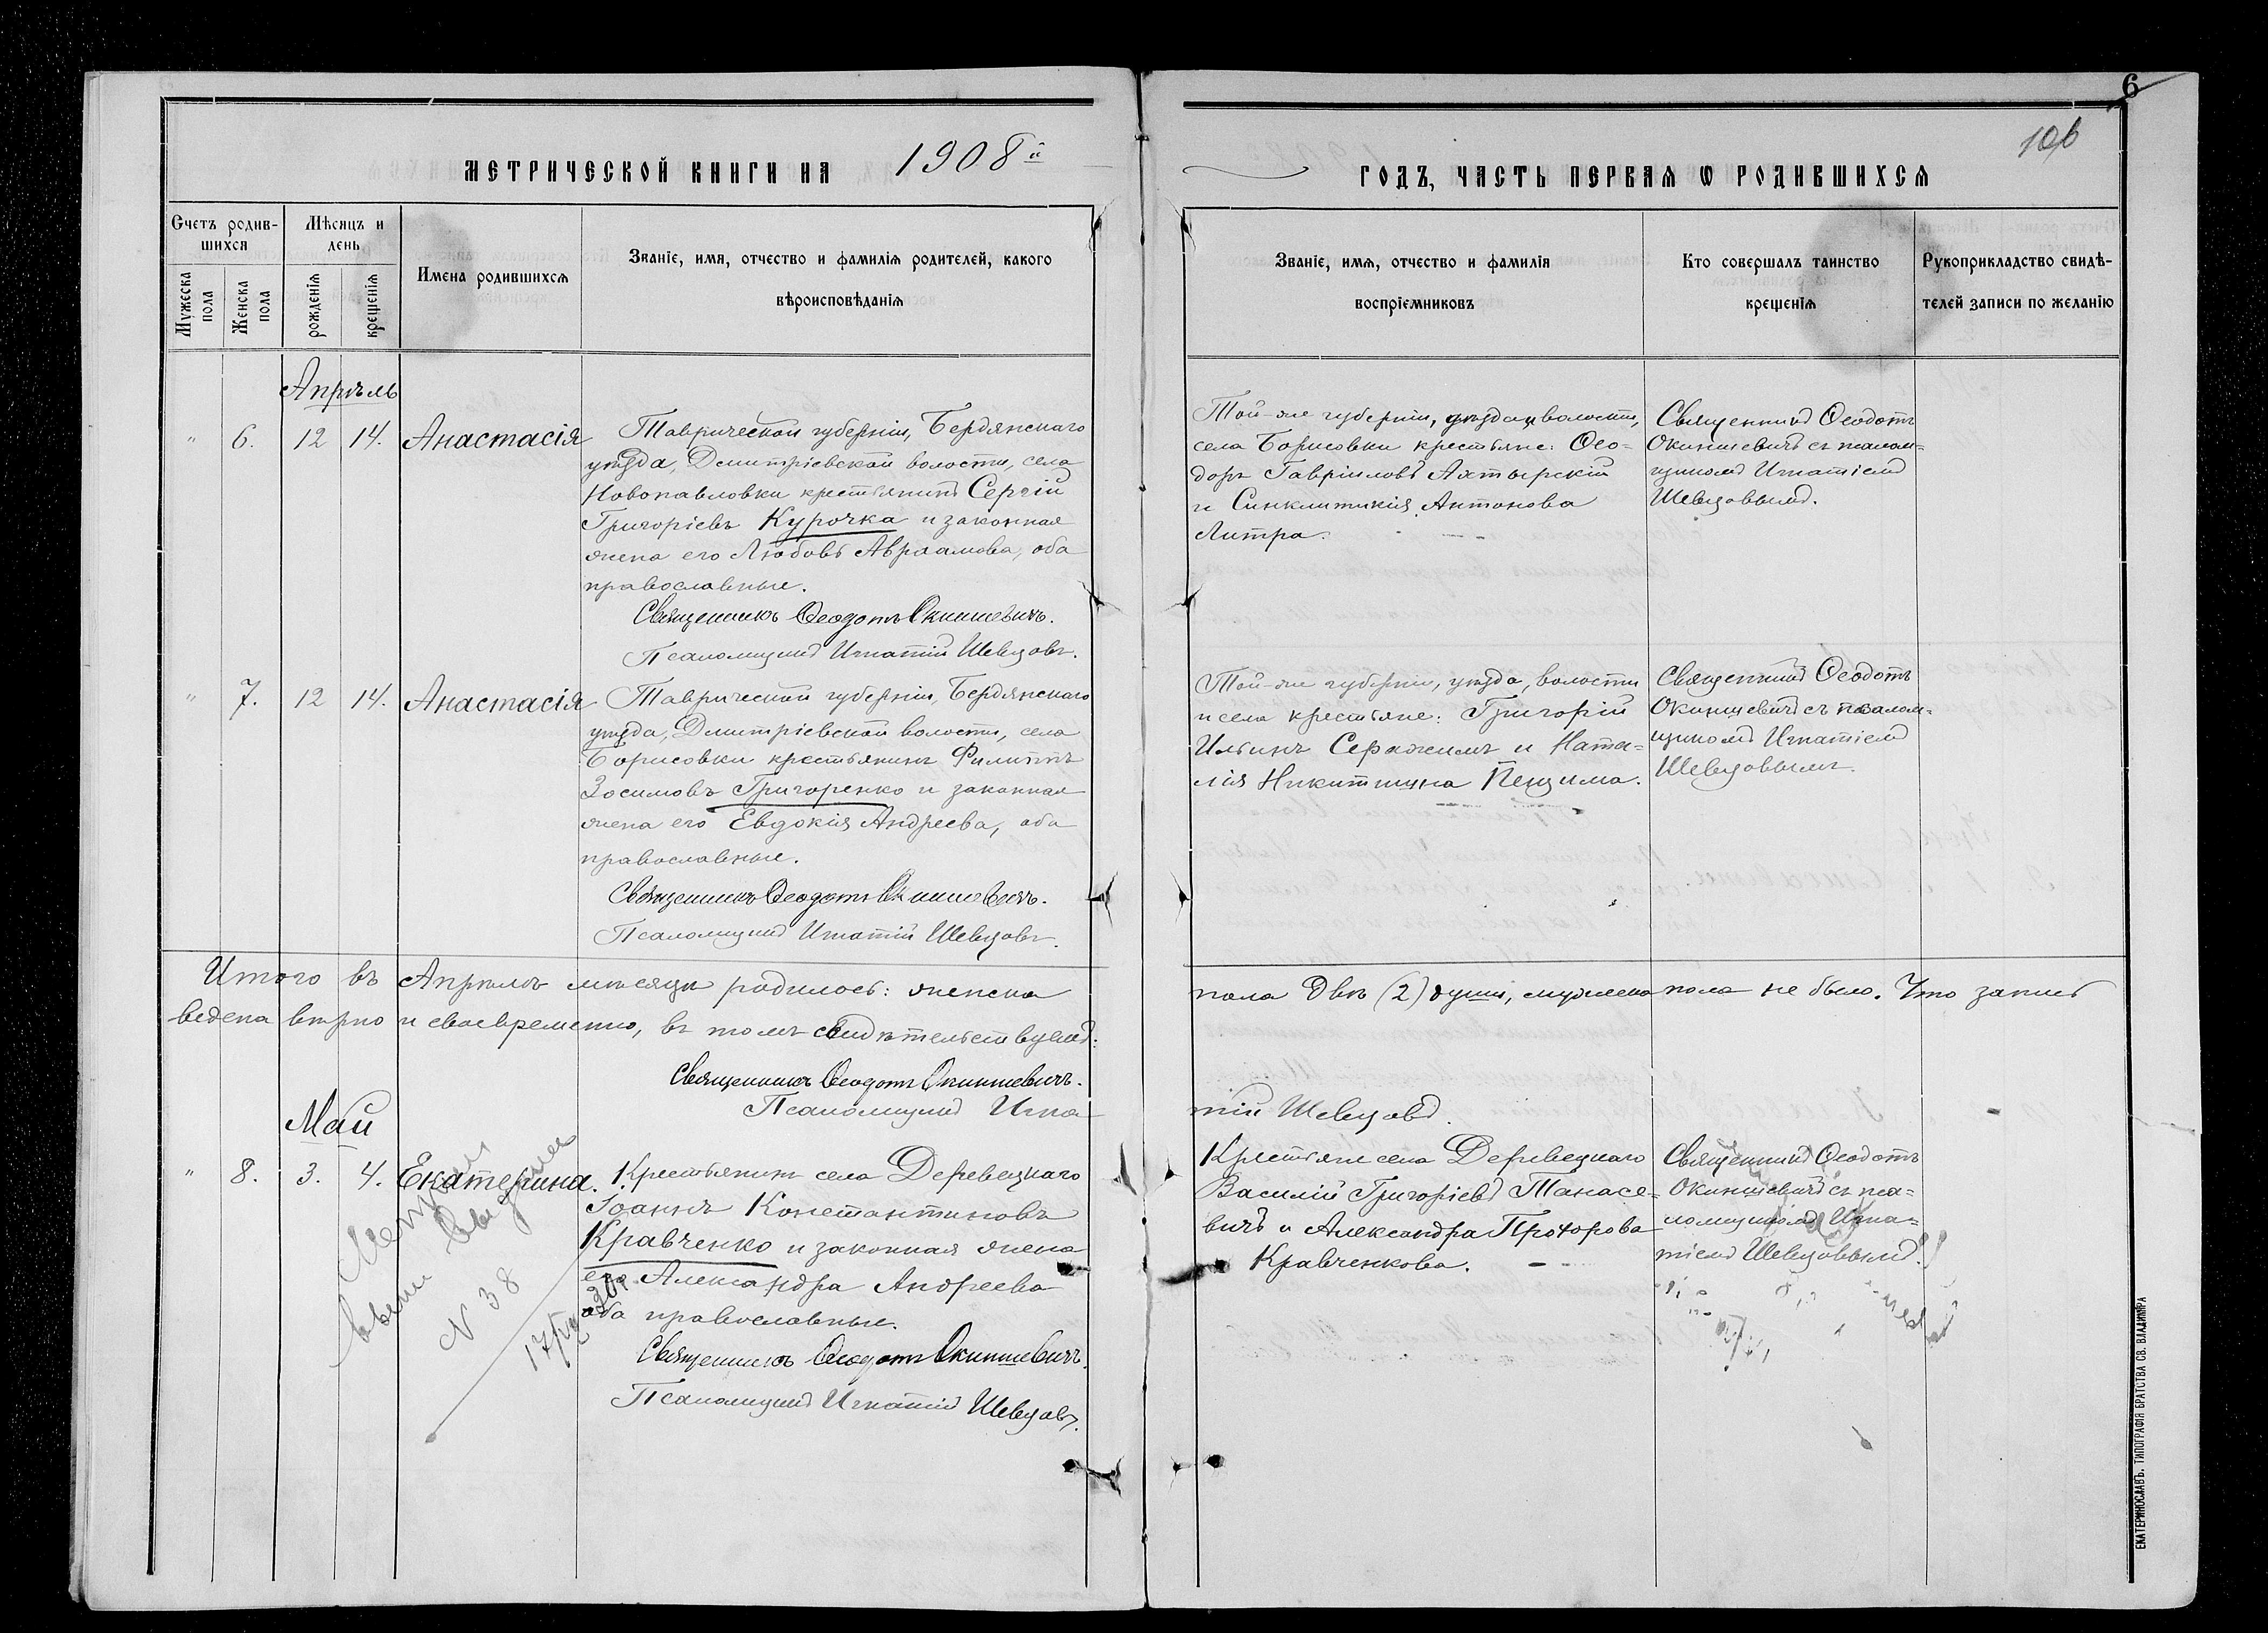 6
106
МЕТРИЧЕСКОЙ КНИГИ НА 1908й
ГОДЪ, ЧАСТЬ ПЕРВАЯ Ѡ РОДИВШИХСЯ
Счетъ родив-
шихся
Мужеска пола
Женска пола
Мѣсяцъ и
день
рожденія
крещенія
Имена родившихся
Званіе, имя, отчество и фамилія родителей, какого
вѣроисповѣданія
Званіе, имя, отчество и фамилія
воспріемниковъ
Кто совершалъ таинство
крещенія
Рукоприкладство свидѣ-
телей записи по желанію
Апрѣль
" 6. 12 14. Анастасія
Таврической губерніи, Бердянскаго
уѣзда, Димитріевской волости, села
Новопавловки крестьянинъ Сергій
Григоріевъ Курочка и законная
жена его Любовь Авраамова, оба
православные.
Священникъ Ѳеодотъ Окиншевичъ.
Псаломщикъ Игнатій Шевцовъ.
Той-же губерніи, уѣзда и волости,
села Борисовки крестьяне: Ѳео-
доръ Гавріиловъ Ахтырскій
и Синклитикія Антонова
Литра.
Священникъ Ѳеодотъ
Окиншевичъ съ псалом-
щикомъ Игнатіемъ
Шевцовымъ.
" 7. 12 14. Анастасія
Таврической губерніи, Бердянскаго
уѣзда, Димитріевской волости, села
Борисовки крестьянинъ Филиппъ
Зосимовъ Григоренко и законная
жена его Евдокія Андреева, оба
православные.
Священникъ Ѳеодотъ Окиншевичъ.
Псаломщикъ Игнатій Шевцовъ.
Той-же губерніи, уѣзда, волости
и села крестьяне: Григорій
Ильинъ Сержимъ и Ната-
лія Никитична Пендима.
Священникъ Ѳеодотъ
Окиншевичъ съ псалом-
щикомъ Игнатіемъ
Шевцовымъ.
Итого въ Апрѣлѣ мѣсяцѣ родилось: женска пола двѣ (2) души, мужеска пола не было. Что запись
ведена вѣрно и своевременно, въ томъ свидѣтельствуемъ:
Священникъ Ѳеодотъ Окиншевичъ.
Псаломщикъ Игнатій Шевцовъ.
Май
" 8. 3. 4. Екатерина.
Крестьянинъ села Деревецкаго
Іоаннъ Константиновъ
Кравченко и законная жена
его Александра Андреева
оба православные.
Священникъ Ѳеодотъ Окиншевичъ.
Псаломщикъ Игнатій Шевцовъ.
Крестьяне села Деревецкаго
Василій Григоріевъ Танасе-
вичъ и Александра Прохорова
Кравченкова.
Священникъ Ѳеодотъ
Окиншевичъ съ пса-
ломщикомъ Игна-
тіемъ Шевцовымъ.
N 38
ЕКАТЕРИНОСЛАВЪ. ТИПОГРАФІЯ БРАТСТВА СВ. ВЛАДИМІРА